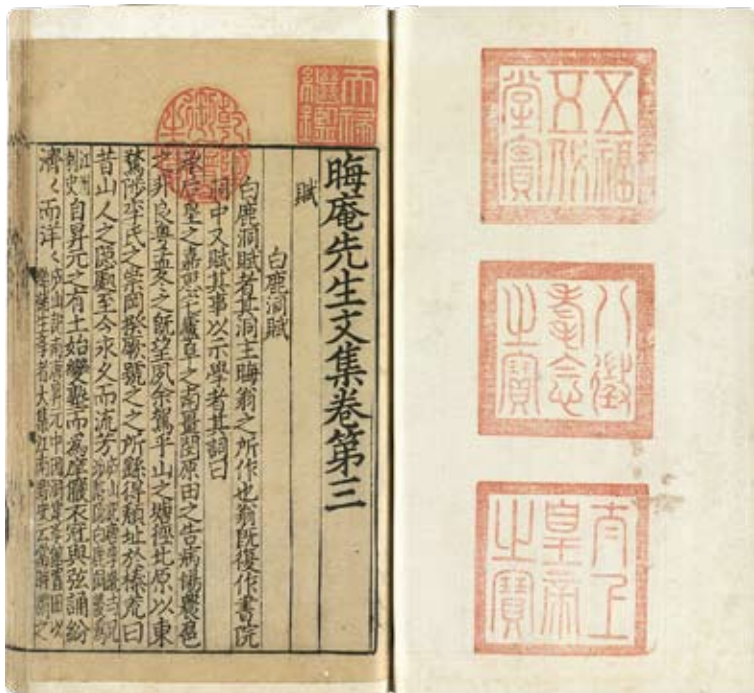 五福五代堂寶
八徵耄念之寶
太上皇帝之寶
天祿繼鑑
乾隆御覽之寶
晦庵先生文集卷第三
賦
白鹿洞賦
白鹿洞賦者其洞主晦翁之所作也翁既復作書院
洞中又賦其事以示學者其詞曰
承后皇之嘉惠宅廬阜之南疆閔原田之告病惕農扈
之非良粵孟冬之既望夙余駕乎山之塘徑北原以東
騖陟李氏之崇岡揆厥號之之所繇得頹址於榛荒曰
昔山人之隱處至今永久而流芳
江州刺史自昇元之有土始變塾而爲庠儼衣冠與弦誦紛
濟々而洋々